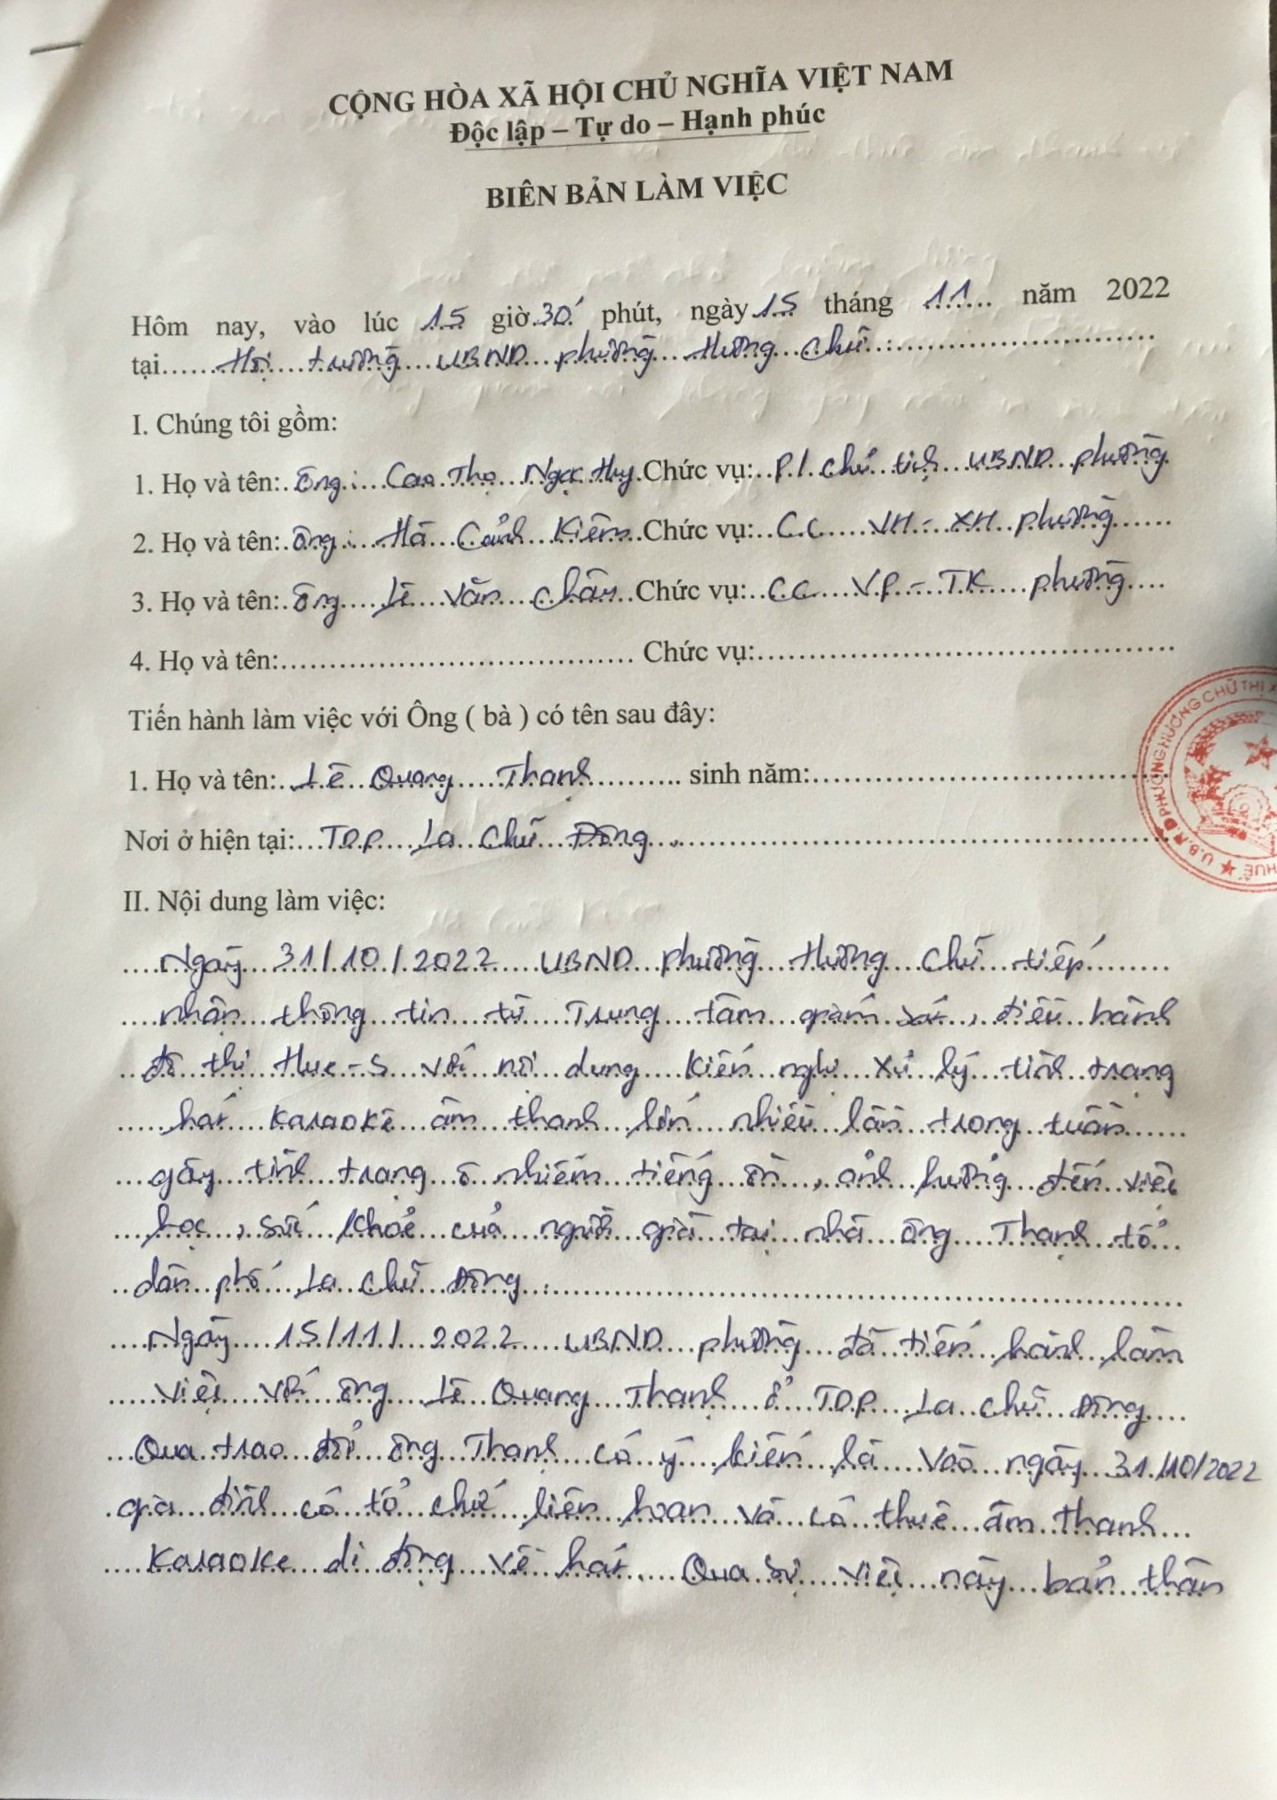 CỘNG HÒA XÃ HỘI CHỦ NGHĨA VIỆT NAM
Độc lập – Tự do – Hạnh phúc
BIÊN BẢN LÀM VIỆC
Hôm nay, vào lúc 15 giờ 30' phút, ngày 15 tháng 11 năm 2022
tại Hội trường UBND phường Hương Chữ
I. Chúng tôi gồm:
1. Họ và tên: Ông: Cao Thọ Ngọc Huy Chức vụ: P/ chủ tịch UBND phường
2. Họ và tên: Ông: Hà Cảnh Kiêm Chức vụ: C.C VH - XH phường
3. Họ và tên: Ông Lê Văn Châu Chức vụ: CC VP - TK phường
4. Họ và tên: Chức vụ:
Tiến hành làm việc với Ông ( bà ) có tên sau đây:
1. Họ và tên: Lê Quang Thanh sinh năm:
Nơi ở hiện tại: TDP La Chữ Đông
II. Nội dung làm việc:
Ngày 31/10/2022 UBND phường Hương Chữ tiếp
nhận thông tin từ Trung tâm giám sát, điều hành
đô thị Hue-S với nội dung kiến nghị xử lý tình trạng
hát Karaoke âm thanh lớn nhiều lần trong tuần
gây tình trạng ô nhiễm tiếng ồn, ảnh hưởng đến việc
học, sức khoẻ của người già tại nhà ông Thanh tổ
dân phố La Chữ Đông
Ngày 15/11/2022 UBND phường đã tiến hành làm
việc với ông Lê Quang Thanh ở TDP La Chữ Đông
Qua trao đổi ông Thanh có ý kiến là vào ngày 31/10/2022
gia đình có tổ chức liên hoan và có thuê âm thanh
Karaoke di động về hát. Qua sự việc này bản thân
U.B.N.D PHƯỜNG HƯƠNG CHỮ THỊ X
HUẾ